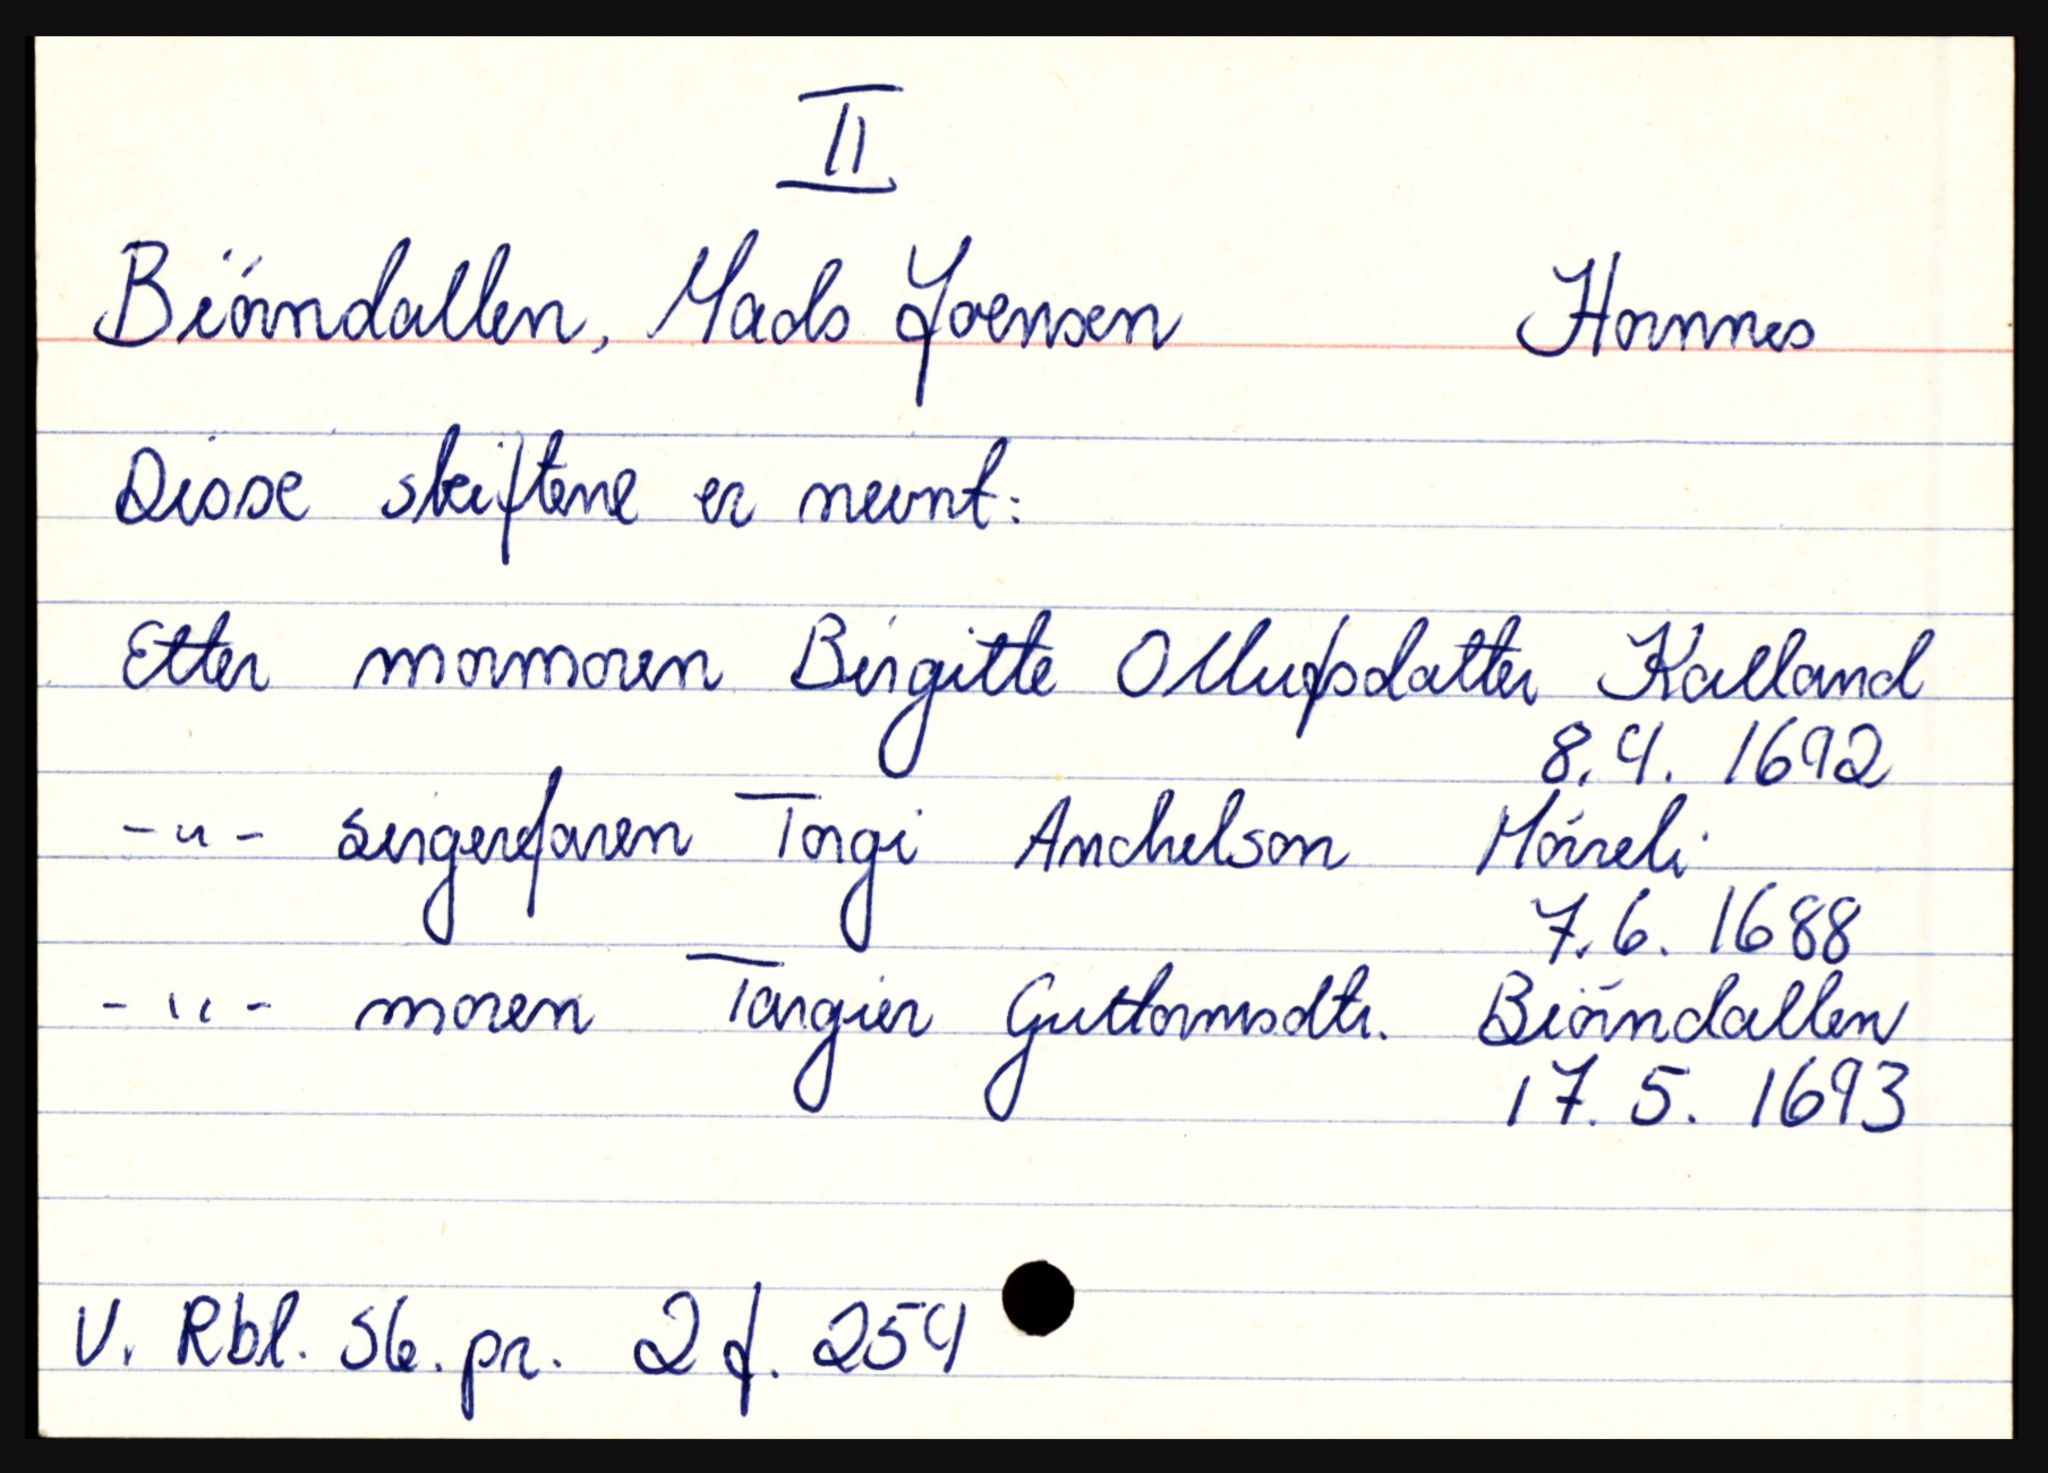 II
Biörndallen, Mads Joensen Hornnes
Disse skiftene er nevnt:
Etter mormoren Birgitte Ollufsdatter Kalland
8.4. 1692
-"- svigerfaren Torgi Anchelson Möireli
7.6. 1688
-"- moren Targier Guttormsdtr. Biörndallen
17.5. 1693
V. Rbl. Sk. pr. 2 f. 254